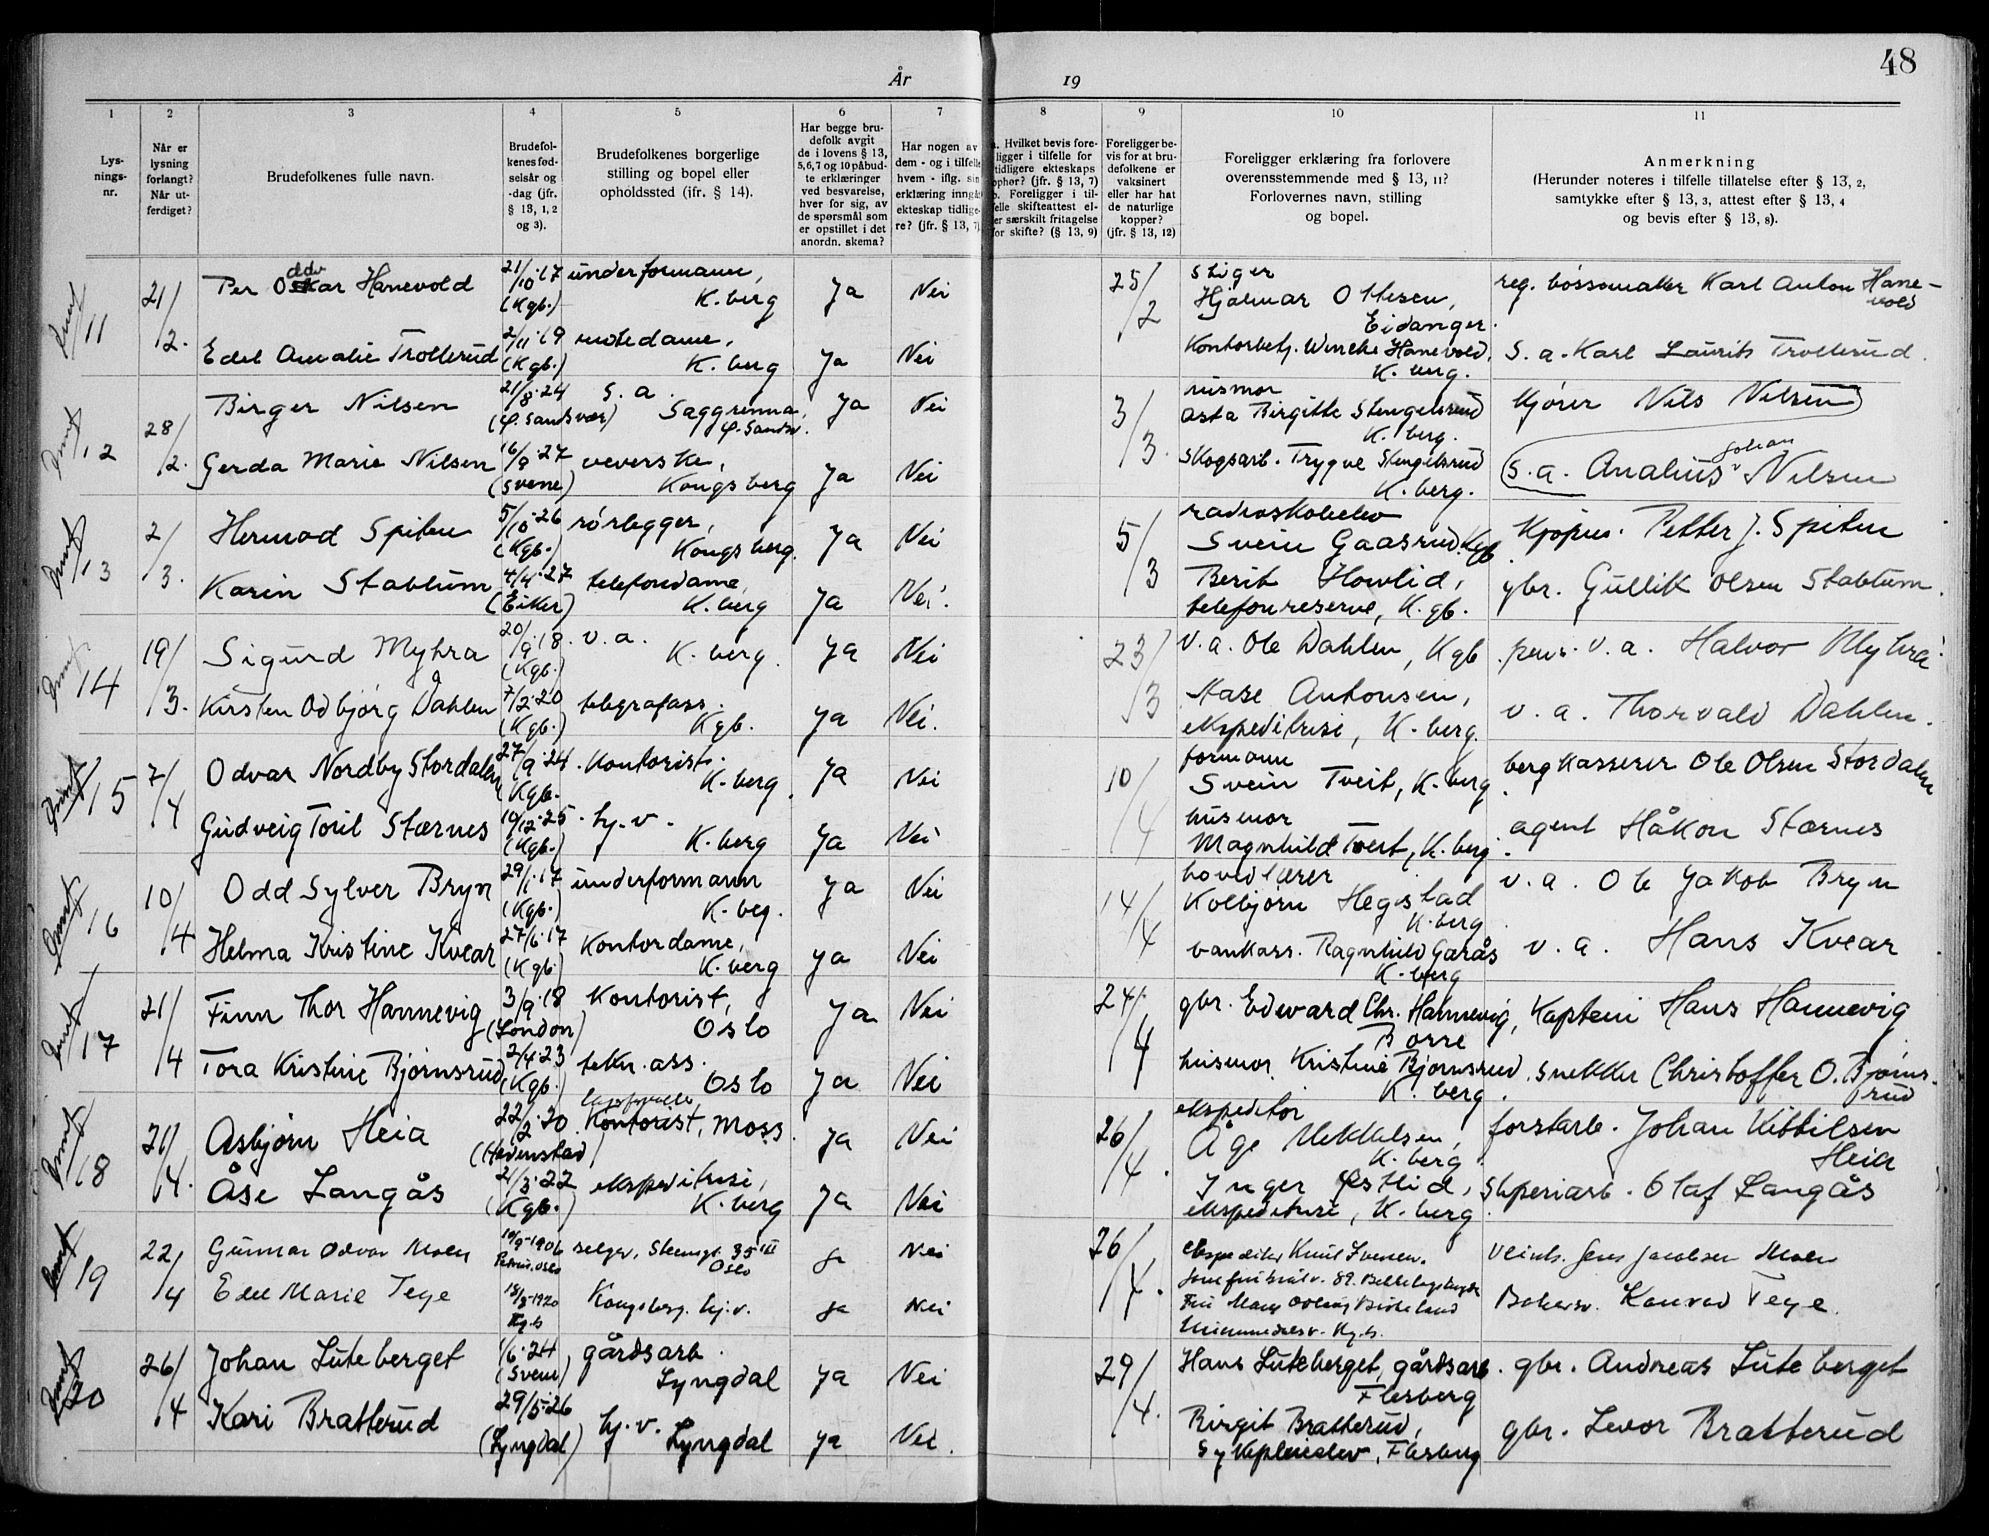 48
År 19
1 2 3 4 5 6 7 8 9 10 11
Lys-
nings-
nr.
Når er
lysning
forlangt?
Når ut-
ferdiget?
Brudefolkenes fulle navn.
Brudefol-
kenes fød-
selsår og
-dag (jfr.
§ 13, 1, 2
og 3).
Brudefolkenes borgerlige
stilling og bopel eller
opholdssted (ifr. § 14).
Har begge bru-
defolk avgit
de i lovens § 13,
5,6,7 og 10 påbud-
te erklæringer
ved besvarelse,
hver for sig, av
de spørsmål som
er opstillet i det
anordn. skema?
Har nogen av
dem - og i tilfelle
hvem - iflg. sin
erklæring inngåt
ekteskap tidlige-
re? (jfr. § 13, 7)
a. Hvilket bevis fore-
ligger i tilfelle for
tidligere ekteskaps
ophør? (jfr. § 13, 7)
b. Foreligger i til-
felle skifteattest el-
ler særskilt fritagelse
for skifte? (§ 13, 9)
Foreligger be-
vis for at bru-
defolkene er
vaksinert
eller har hat
de naturlige
kopper?
(jfr. § 13, 12)
Foreligger erklæring fra forlovere
overensstemmende med § 13, 11?
Forlovernes navn, stilling
og bopel.
Anmerkning
(Herunder noteres i tilfelle tillatelse efter § 13, 2,
samtykke efter § 13, 3, attest efter § 13, 4
og bevis efter § 13, 8).
11 21/2. Per Oddvar Hanevold 21/10·17 (Kgb.) underformann, K.berg Ja Nei 25/2 stiger Hjalmar Ottesen, Eidanger. reg. bøssemaker Karl Anton Hanevold
Edel Amalie Trollerud 2/11·19 (Kgb.) K. berg Ja Nei Kontorbetj. Wenche Hanevold, K. berg. S. a. Karl Laurits Trollerud.
12 28/2. Birger Nilsen 21/8·24 (Ø. Sandsvær) S. a. Saggrenna, Ø. Sandsv. Ja Nei 3/3. husmor Asta Birgitte Stengelsrud K. berg. Kjører Nils Nilsen
Gerda Marie Nilsen 16/9·27 (Svene) veverske, Kongsberg Ja Nei Skogsarb. Trygve Stengelsrud K. berg. S. a. Analius Johan Nilsen
13 2/3. Hermod Spiten 5/10·26 (Kgb.) rørlegger, Kongsberg. Ja Nei 5/3 radioskoleelev Svein Gaasrud. Kgb. Kjøpm. Petter J. Spiten
Karin Stablum 4/4·27 (Eiker) telefondame, K. berg Ja Nei. Berit Howlid, telefonreserve, K. gb. gbr. Gullik Olsen Stablum.
14 19/3. Sigurd Myhra 20/9·18. (Kgb.) v. a. K. berg. Ja Nei 23/3 V. a. Ole Dahlen, Kgb. pens. v. a. Halvor Myhra
Kirsten Odbjørg Dahlen 7/2·20 (Kgb.) telegrafass. Kgb. Ja Nei. Aase Antonsen, ekspeditrise, K. berg. v. a. Thorvald Dahlen.
15 7/4 Odvar Nordby Stordalen 27/9·24. Kgb. Kontorist. K. berg. Ja Nei 10/4 formann Svein Tveit, K. berg. bergkasserer Ole Olsen Stordalen
Gudveig Toril Stærnes 10/12·25. (Kgb.) hj. v. K. berg Ja Nei husmor Magnhild Tveit, K. berg. agent Håkon Stærnes
16 10/4 Odd Sylver Bryn 29/1·17 (Kgb.) underformann K. beg. Ja Nei 14/4 hovedlærer Kolbjørn Hegstad K. berg v. a. Ole Jakob Bryn
Helma Kristine Kvear 27/6·17 (Kgb.) Kontordame, K. berg Ja Nei Ragnhild Garås K. berg v. a. Hans Kvear
17 21/4 Finn Thor Hannevig 3/9·18 (London) Kontorist, Oslo Ja Nei 24/4 gbr. Edward Chr. Hannevig, Borre Kaptein Hans Hannevig
Tora Kristine Bjørnsrud 2/4·23 (Kgb.) tekn. ass. Oslo Ja Nei husmor Kristine Bjørnsrud K. berg. snekker Christoffer O. Bjørnsrud
18 21/4. Asbjørn Heia 22/2·20. (Hedenstad) Kontorist, Moss. Ja Nei 26/4. ekspeditør Åge Mikkelsen, K. berg. forstarb. Johan Kittilsen Heia
Åse Langås 21/3·22 (Kgb.) ekspeditrise, K. berg Ja Nei Inger Østlid, ekspeditrise, K. berg. sliperiarb. Olaf Langås
19 22/4 Gunnar Odvar Moen 10/9·1906 Petrus. Oslo selger. Steensgt. 35 III Oslo ja Nei 26/4. Knut Iversen. Veivokt. Jens Jacobsen Moen
Edel Marie Tege 18/3·1920 Kgb Kongsberg. hj. v. ja Nei Birkeland Kgb. Konrad Tege.
20 26/4 Johan Luteberget 1/6·24 (Svene) gårdsarb. Lyngdal Ja Nei 29/4. Hans Luteberget, gårdsarb. Flesberg gbr. Andreas Luteberget
Kari Bratterud 29/5·26 (Lyngdal) hj. v. Lyngdal Ja Nei. Birgit Bratterud, Flesberg gbr. Levor Bratterud